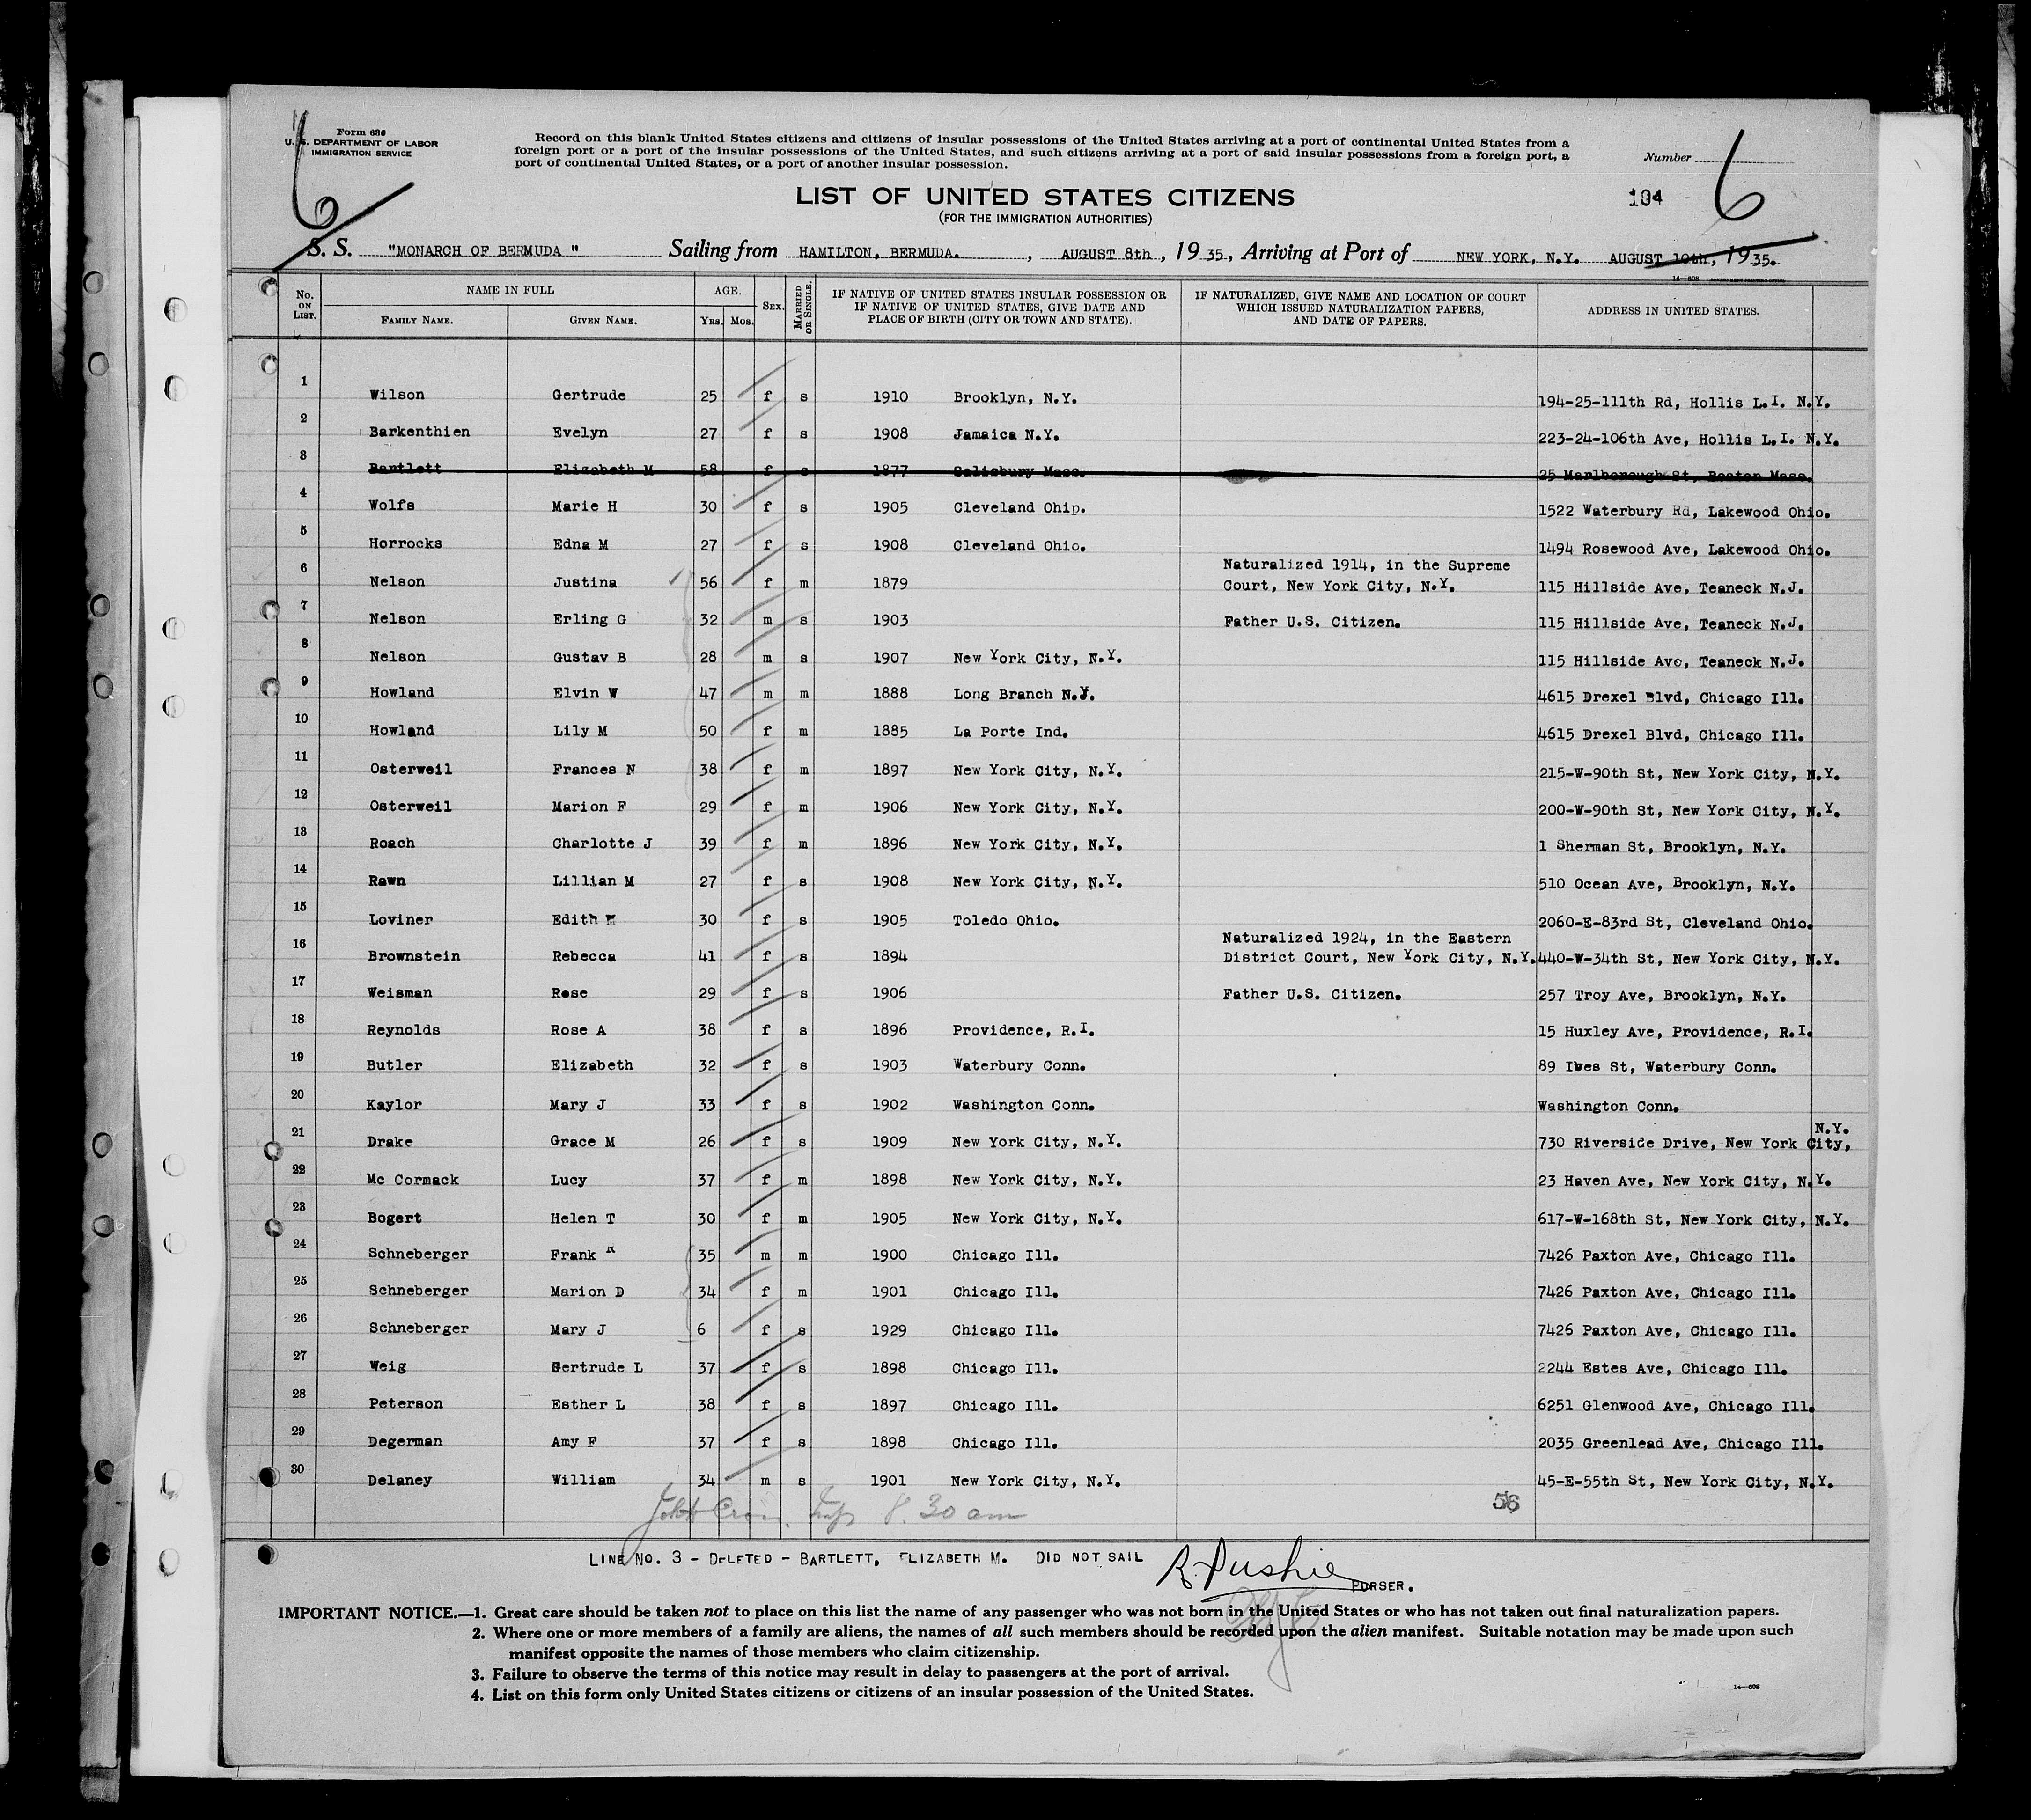 Form 686
U. S. DEPARTMENT OF LABOR
IMMIGRATION SERVICE
6
Record on this blank United States citizens and citizens of insular possessions of the United States arriving at a port of continental United States from a
foreign port or a port of the insular possessions of the United States, and such citizens arriving at a port of said insular possessions from a foreign port, a
port of continental United States, or a port of another insular possession.
Number
6
LIST OF UNITED STATES CITIZENS
(FOR THE IMMIGRATION AUTHORITIES)
104
S. S. "MONARCH OF BERMUDA " Sailing from HAMILTON, BERMUDA. , AUGUST 8th , 19 35., Arriving at Port of NEW YORK, N.Y. AUGUST 10th, 19 35.
No. ON LIST. NAME IN FULL FAMILY NAME. GIVEN NAME. AGE. YRS. MOS. SEX. MARRIED OR SINGLE. IF NATIVE OF UNITED STATES INSULAR POSSESSION OR IF NATIVE OF UNITED STATES, GIVE DATE AND PLACE OF BIRTH (CITY OR TOWN AND STATE). IF NATURALIZED, GIVE NAME AND LOCATION OF COURT WHICH ISSUED NATURALIZATION PAPERS, AND DATE OF PAPERS. ADDRESS IN UNITED STATES.
1 Wilson Gertrude 25 f s 1910 Brooklyn, N.Y. 194-25-111th Rd, Hollis L.I. N.Y.
2 Barkenthien Evelyn 27 f s 1908 Jamaica N.Y. 223-24-106th Ave, Hollis L.I. N.Y.
3 Bartlett Elizabeth M 58 f s 1877 Salisbury Mass. 25 Marlborough St, Boston Mass.
4 Wolfs Marie H 30 f s 1905 Cleveland Ohip. 1522 Waterbury Rd, Lakewood Ohio.
5 Horrocks Edna M 27 f s 1908 Cleveland Ohio. 1494 Rosewood Ave, Lakewood Ohio.
6 Nelson Justina 56 f m 1879 Naturalized 1914, in the Supreme Court, New York City, N.Y. 115 Hillside Ave, Teaneck N.J.
7 Nelson Erling G 32 m s 1903 Father U.S. Citizen. 115 Hillside Ave, Teaneck N.J.
8 Nelson Gustav B 28 m s 1907 New York City, N.Y. 115 Hillside Ave, Teaneck N.J.
9 Howland Elvin W 47 m m 1888 Long Branch N.J. 4615 Drexel Blvd, Chicago Ill.
10 Howland Lily M 50 f m 1885 La Porte Ind. 4615 Drexel Blvd, Chicago Ill.
11 Osterweil Frances N 38 f m 1897 New York City, N.Y. 215-W-90th St, New York City, N.Y.
12 Osterweil Marion F 29 f m 1906 New York City, N.Y. 200-W-90th St, New York City, N.Y.
13 Roach Charlotte J 39 f m 1896 New York City, N.Y. 1 Sherman St, Brooklyn, N.Y.
14 Rawn Lillian M 27 f s 1908 New York City, N.Y. 510 Ocean Ave, Brooklyn, N.Y.
15 Loviner Edith 30 f s 1905 Toledo Ohio. 2060-E-83rd St, Cleveland Ohio.
16 Brownstein Rebecca 41 f s 1894 Naturalized 1924, in the Eastern District Court, New York City, N.Y. 440-W-34th St, New York City, N.Y.
17 Weisman Rose 29 f s 1906 Father U.S. Citizen. 257 Troy Ave, Brooklyn, N.Y.
18 Reynolds Rose A 38 f s 1896 Providence, R.I. 15 Huxley Ave, Providence, R.I.
19 Butler Elizabeth 32 f s 1903 Waterbury Conn. 89 Ives St, Waterbury Conn.
20 Kaylor Mary J 33 f s 1902 Washington Conn. Washington Conn.
21 Drake Grace M 26 f s 1909 New York City, N.Y. 730 Riverside Drive, New York City, N.Y.
22 Mc Cormack Lucy 37 f m 1898 New York City, N.Y. 23 Haven Ave, New York City, N.Y.
23 Bogert Helen T 30 f m 1905 New York City, N.Y. 617-W-168th St, New York City, N.Y.
24 Schneberger Frank R 35 m m 1900 Chicago Ill. 7426 Paxton Ave, Chicago Ill.
25 Schneberger Marion D 34 f m 1901 Chicago Ill. 7426 Paxton Ave, Chicago Ill.
26 Schneberger Mary J 6 f s 1929 Chicago Ill. 7426 Paxton Ave, Chicago Ill.
27 Weig Gertrude L 37 f s 1898 Chicago Ill. 2244 Estes Ave, Chicago Ill.
28 Peterson Esther L 38 f s 1897 Chicago Ill. 6251 Glenwood Ave, Chicago Ill.
29 Degerman Amy F 37 f s 1898 Chicago Ill. 2035 Greenlead Ave, Chicago Ill.
30 Delaney William 34 m s 1901 New York City, N.Y. 45-E-55th St, New York City, N.Y.
8.30 am
56
LINE NO. 3 - DELETED - BARTLETT, ELIZABETH M. DID NOT SAIL
R. Pushie PURSER.
IMPORTANT NOTICE.—1. Great care should be taken not to place on this list the name of any passenger who was not born in the United States or who has not taken out final naturalization papers.
2. Where one or more members of a family are aliens, the names of all such members should be recorded upon the alien manifest. Suitable notation may be made upon such
manifest opposite the names of those members who claim citizenship.
3. Failure to observe the terms of this notice may result in delay to passengers at the port of arrival.
4. List on this form only United States citizens or citizens of an insular possession of the United States.
14—608